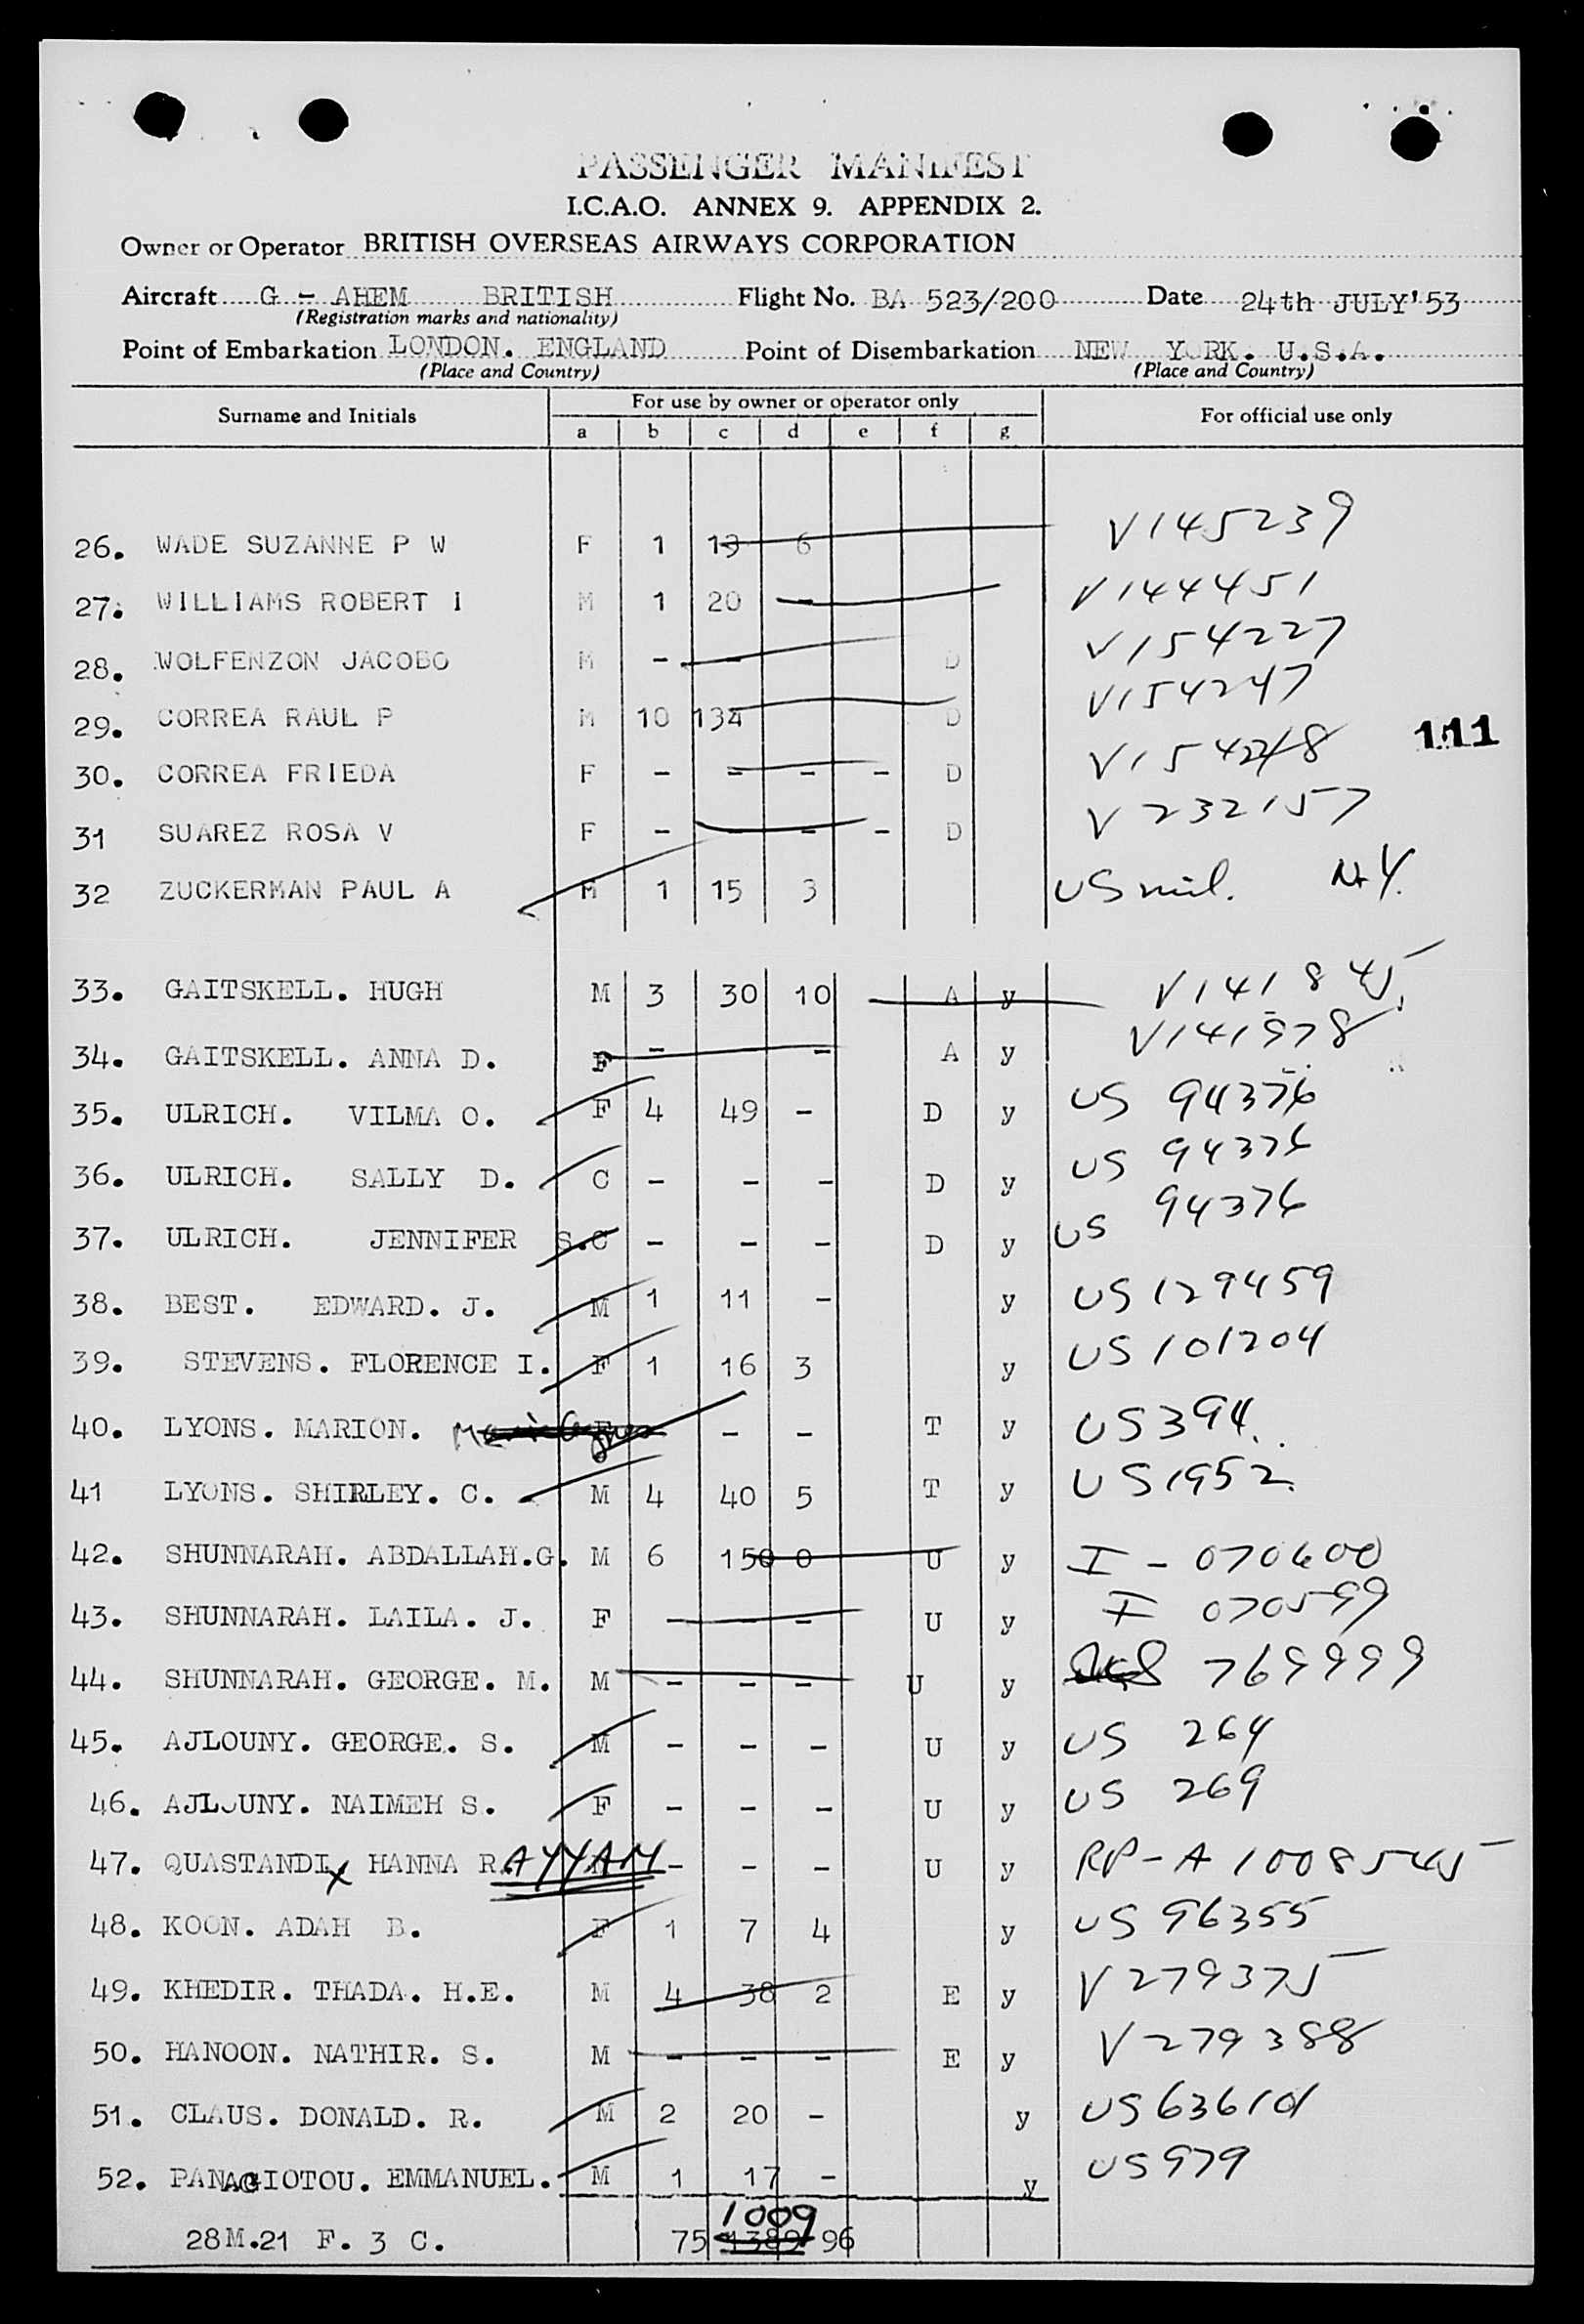 PASSENGER MANIFEST
I.C.A.O. ANNEX 9. APPENDIX 2.
Owner or Operator BRITISH OVERSEAS AIRWAYS CORPORATION
Aircraft G - AHEM BRITISH Flight No. BA 523/200 Date 24th JULY'53
(Registration marks and nationality)
Point of Embarkation LONDON. ENGLAND Point of Disembarkation NEW YORK. U.S.A.
(Place and Country) (Place and Country)
Surname and Initials For use by owner or operator only For official use only
a b c d e f g
26. WADE SUZANNE P W F 1 13 6 V145239
27. WILLIAMS ROBERT I M 1 20 - V144451
28. WOLFENZON JACOBO M - - D V154227
29. CORREA RAUL P M 10 134 D V154247
111
30. CORREA FRIEDA F - - - - D V154248
31 SUAREZ ROSA V F - - - - D V232157
32 ZUCKERMAN PAUL A M 1 15 3 US mil. NY.
33. GAITSKELL. HUGH M 3 30 10 A y V141845
34. GAITSKELL. ANNA D. F - - A y V141878
35. ULRICH. VILMA O. F 4 49 - D y US 94376
36. ULRICH. SALLY D. C - - - D y US 94376
37. ULRICH. JENNIFER S.C - - - D y US 94376
38. BEST. EDWARD. J. M 1 11 - y US 129459
39. STEVENS. FLORENCE I. F 1 16 3 y US 101204
40. LYONS. MARION. F - - T y US 394
41 LYONS. SHIRLEY. C. M 4 40 5 T y US 1952
42. SHUNNARAH. ABDALLAH.G. M 6 150 0 U y I - 070600
43. SHUNNARAH. LAILA. J. F - - U y I 070599
44. SHUNNARAH. GEORGE. M. M - - - U y 769999
45. AJLOUNY. GEORGE. S. M - - - U y US 264
46. AJLOUNY. NAIMEH S. F - - - U y US 269
47. QUASTANDI x HANNA R. AYYAM - - - U y RP-A 1008545
48. KOON. ADAH B. F 1 7 4 y US 96355
49. KHEDIR. THADA. H.E. M 4 38 2 E y V279375
50. HANOON. NATHIR. S. M - - - E y V279388
51. CLAUS. DONALD. R. M 2 20 - y US 63610
52. PANAGIOTOU. EMMANUEL. M 1 17 - y US 979
1009
28M.21 F. 3 C. 75 1389 96